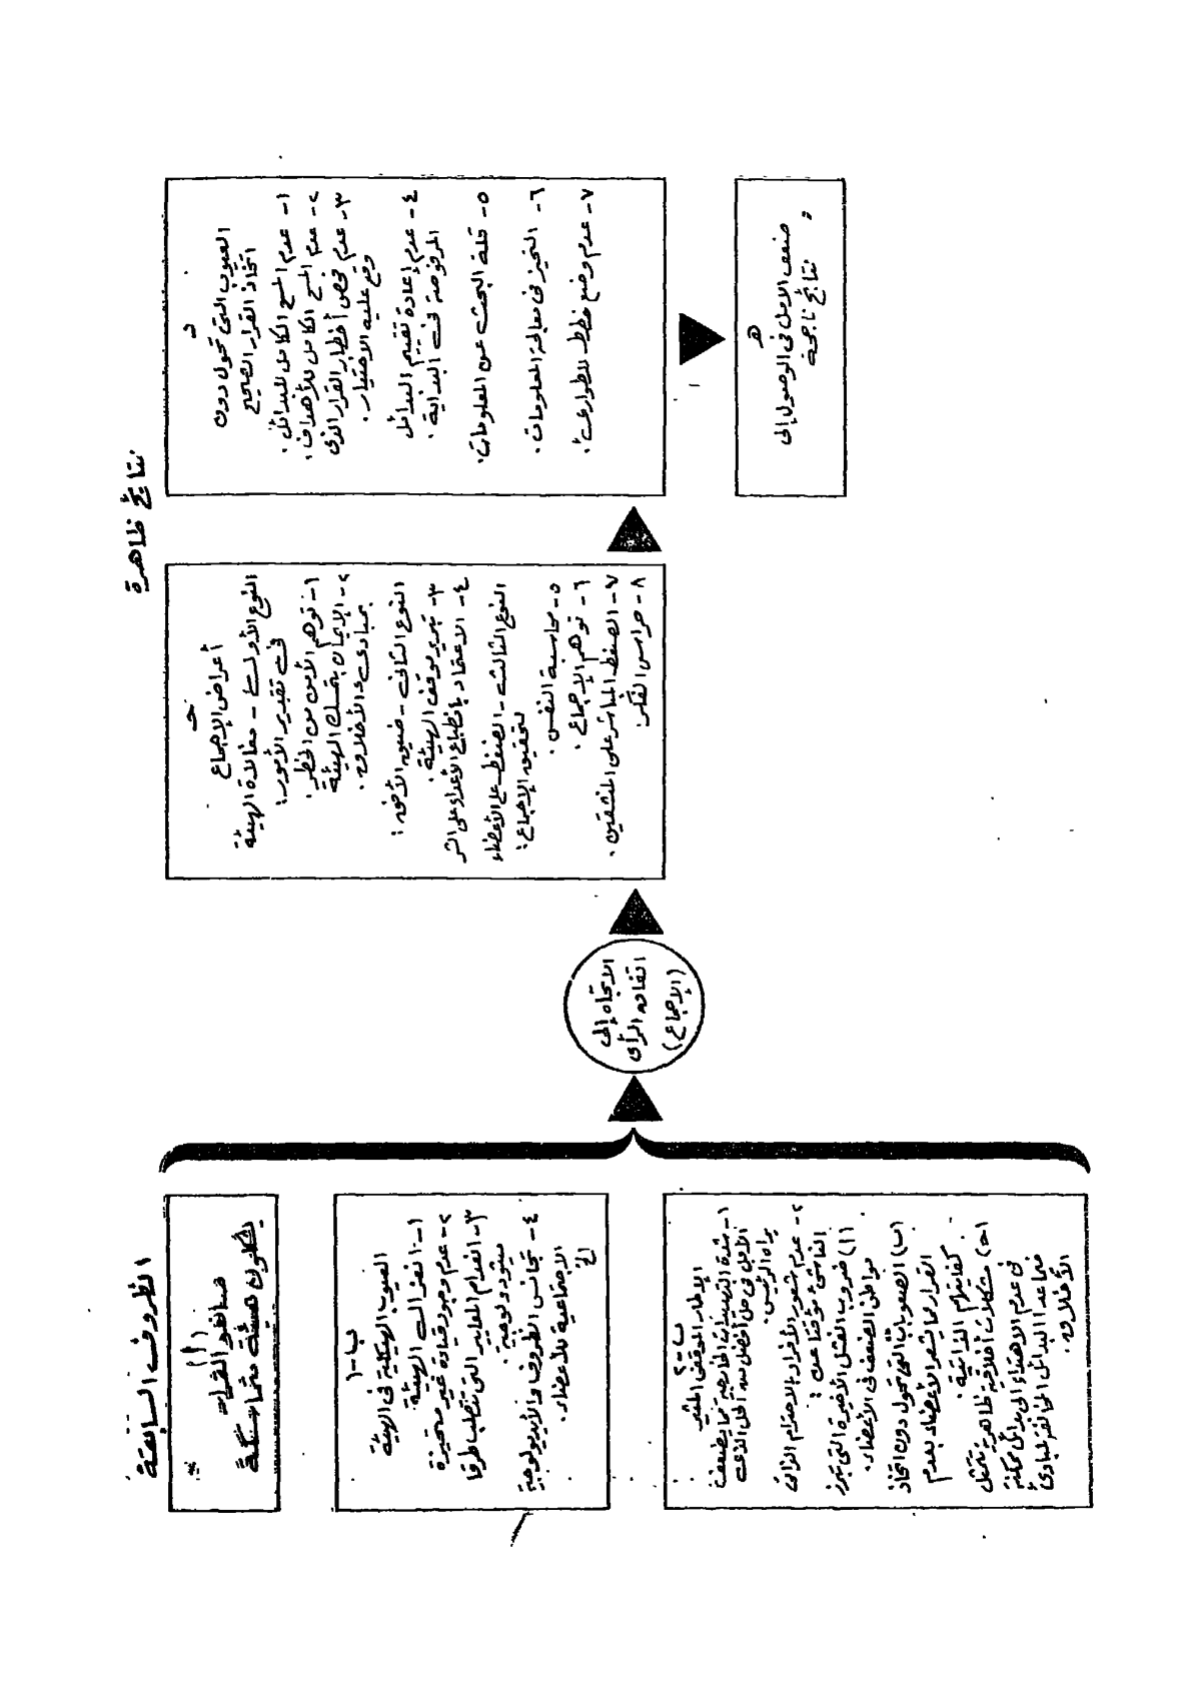 الظروف السابقة
(أ)
صانعو القرارات
يشكلون هيئة متماسكة
ب-١
العيوب الهيكلية فى الهيئة
١- انعزال الهيئة.
٢- عدم وجود قيادة غير متحيزة
٣- انعدام المعايير التى تتطلب طرقا
ميثودولوجية.
٤- تجانس الظروف والأيديولوجية
الاجتماعية للأعضاء.
إلخ
ب-٢
الإطار الموقفى المثير
١- شدة التهديدات الخارجية مما يضعف
الأمل فى حل أفضل من الحل الذى
يراه الرئيس.
٢- عدم شعور الأفراد بالاحترام الذاتى
الناشئ مؤقتا عن:
(أ) ضروب الفشل الأخيرة التى تبرز
مواطن الضعف فى الأعضاء.
(ب) الصعوبات التى تحول دون اتخاذ
القرار مما يشعر الأعضاء بعدم
كفايتهم الذاتية.
(جـ) مشكلات أخلاقية ظاهرية تتمثل
فى عدم الاهتداء إلى بدائل ممكنة
فيما عدا البدائل المخالفة لمبادئ
الأخلاق.
الاتجاه إلى
اتفاق الرأى
(الإجماع)
نتائج ظاهرة
جـ
أعراض الإجماع
النوع الأول - مغالاة الهيئة
فى تقدير الأمور:
١- توهم الأمن من الخطر.
٢- الإيمان بتمسك الهيئة
بمبادىء الأخلاق.
النوع الثانى - ضيق الأفق:
٣- تبرير موقف الهيئة.
٤- الاعتقاد بانطباع الأعداء على الشر
النوع الثالث - الضغط على الأعضاء
لتحقيق الإجماع:
٥- محاسبة النفس.
٦- توهم الإجماع.
٧- الضغط المباشر على المنشقين.
٨- حراس الفكر.
د
العيوب التى تحول دون
اتخاذ القرار الصحيح
١- عدم المسح الكامل للبدائل.
٢- عدم المسح الكامل للأهداف.
٣- عدم فحص أخطار القرار الذى
وقع عليه الاختيار.
٤- عدم إعادة تقييم البدائل
المرفوضة فى البداية.
٥- قلة البحث عن المعلومات.
٦- التحيز فى معالجة المعلومات.
٧- عدم وضع خطط للطوارىء.
هـ
ضعف الأمل فى الوصول إلى
نتائج ناجحة